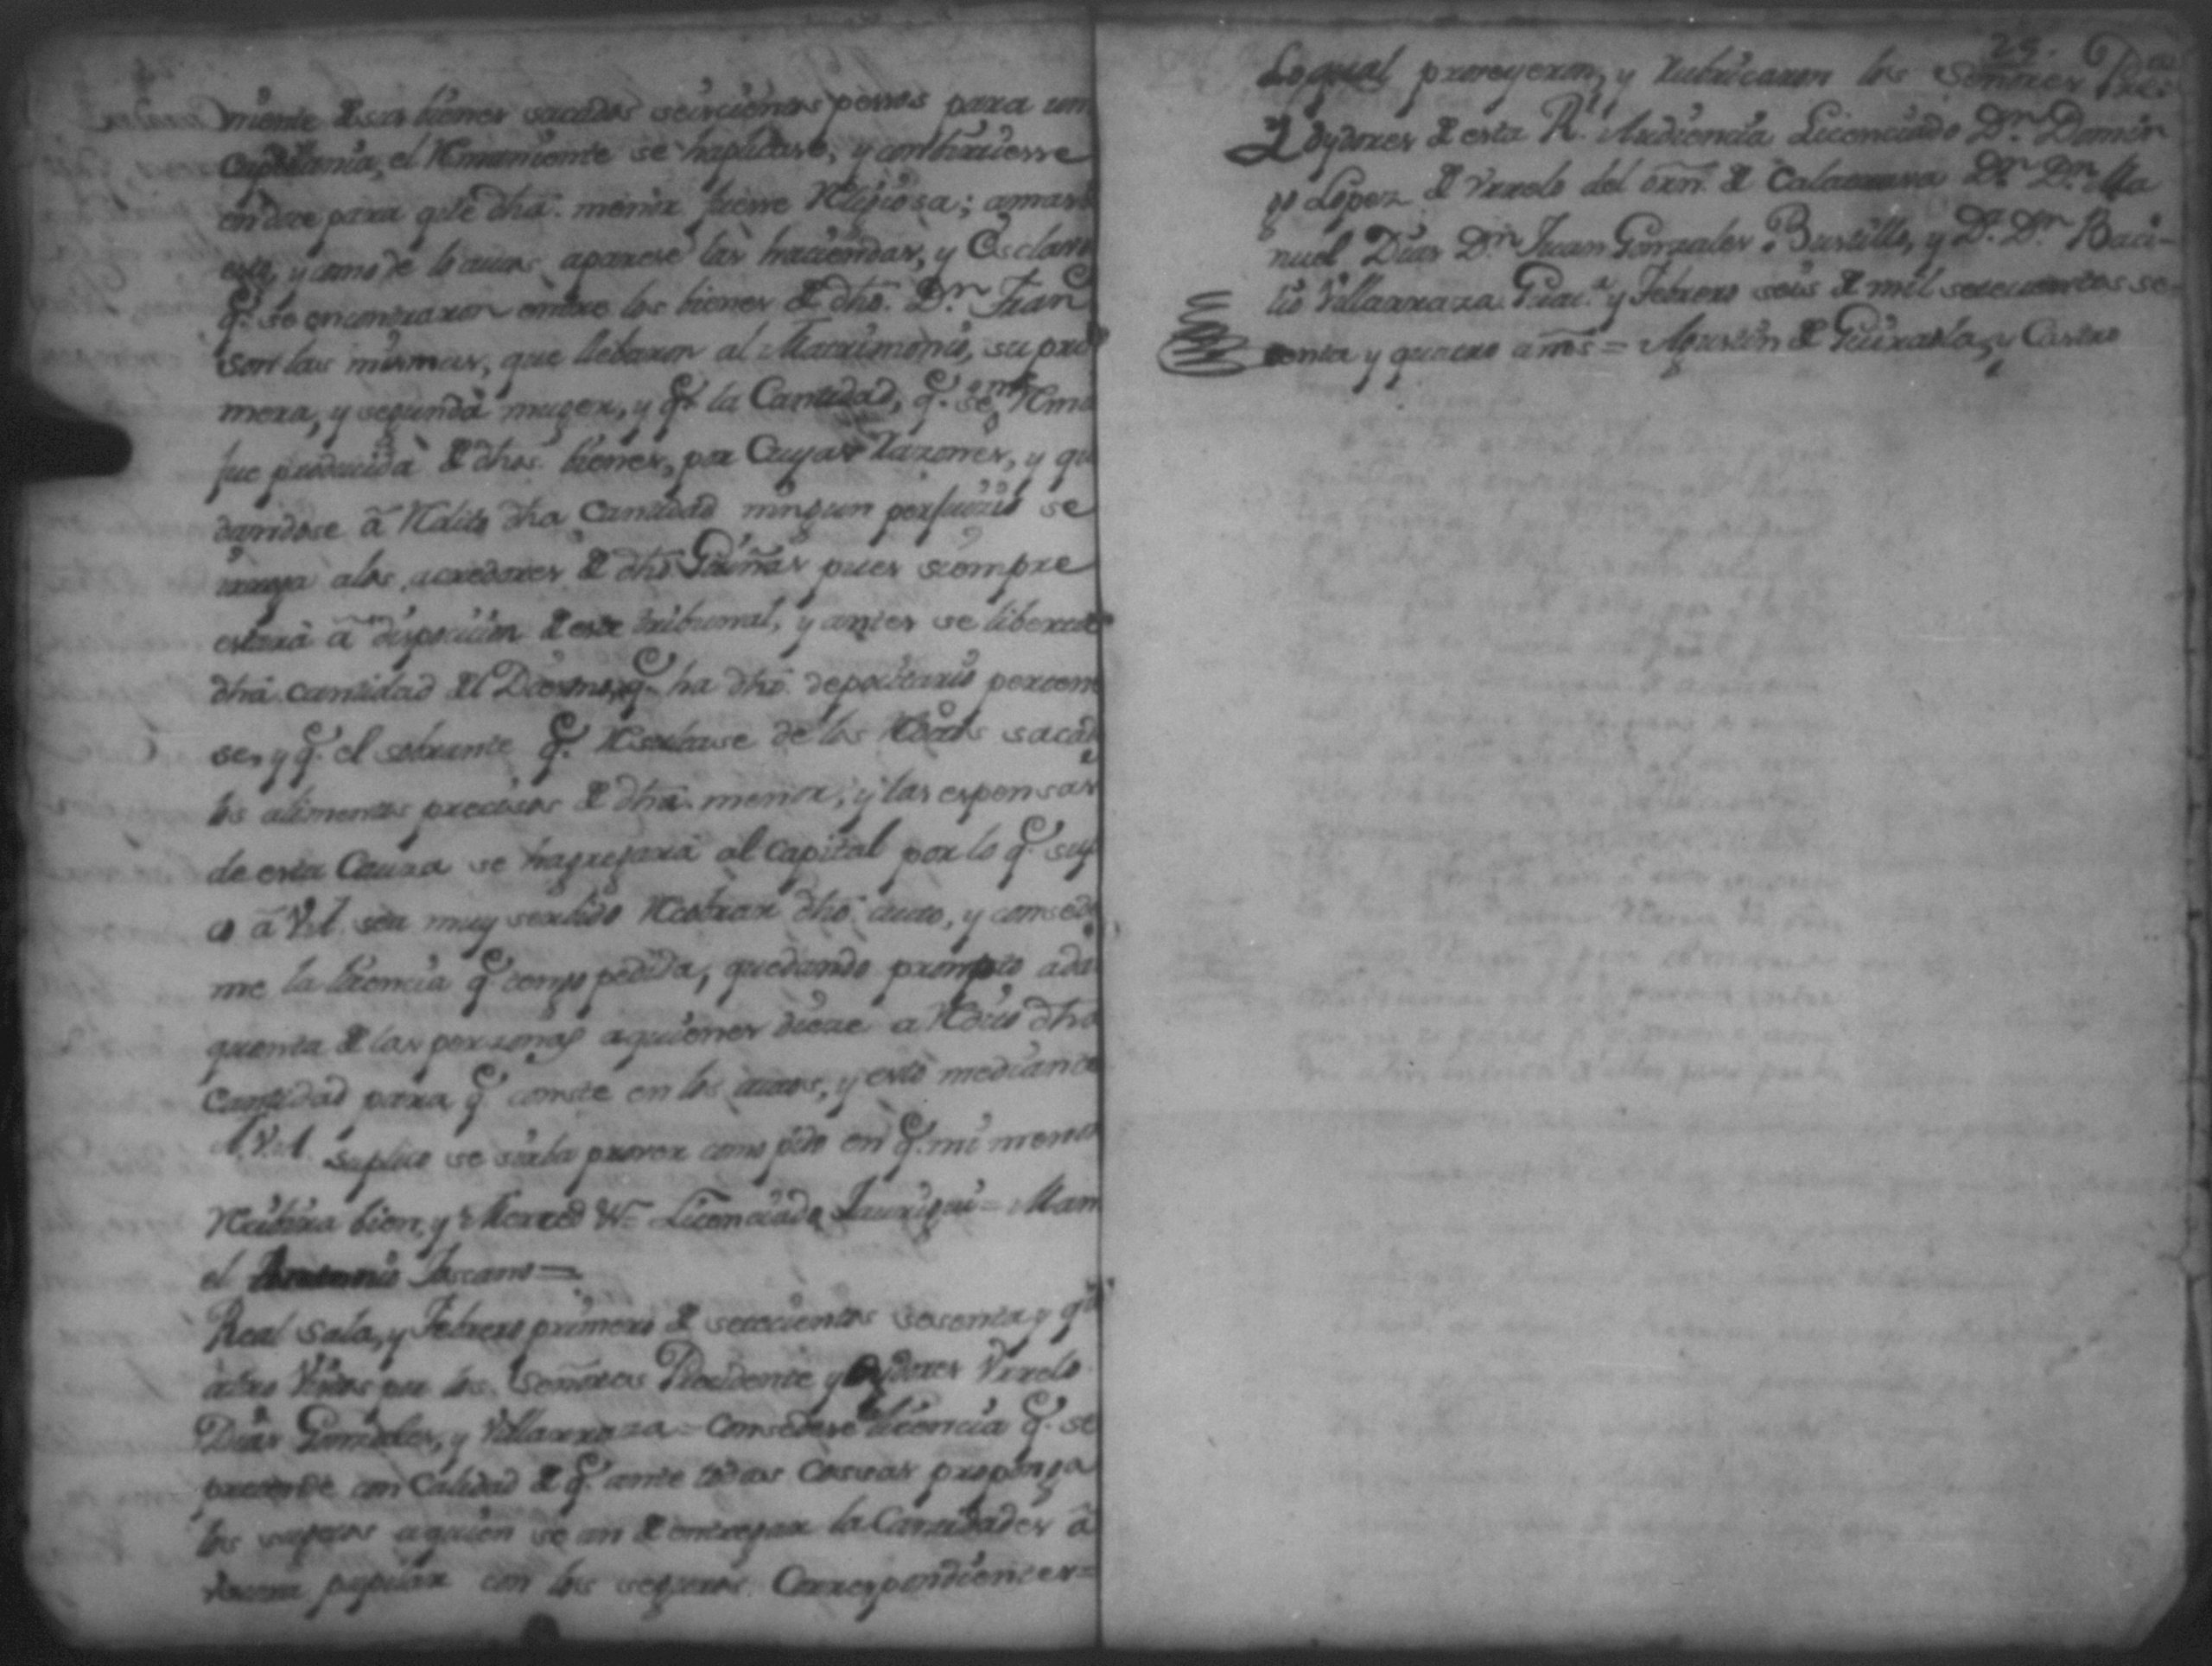 mente de sus bienes sacados seiscientos pessos para una
Capellania, el Remaniente se haplicase, y combirtiesse
en dote para q.e dha. menor fuesse Religiosa; amas de
esto, y como de lo autos aparese las haciendas, y Esclavos
q.e se encontraron entre los bienes de dho. D.n Fran
son las mismas, que llebaron al Matrimonio, su pri
mera, y segunda muger, y q.e la Cantidad, q.e se Rema
fue producida de dhos. bienes, por Cuyas Razones, y que
dandose â Redito dha Cantidad ningun perjuizio se
irroga alos acredores de dho Guiñas pues siempre
estará â disposicion de este tribunal, y antes se liberta
dha. cantidad del Diesmo, q.e ha dho. depocitario pertene
se, y q.e el sobrante q.e Resultase de los Reditos sacad
los alimentos precisos de dha. menor, y las espensas
de esta Causa se hagregara al Capital por lo q.e sup
co â V.A. sea muy serbido Recobrar dho. auto, y consed
me la licencia q.e tengo pedida, quedando prompto ada
quenta de las perzonas aquienes diere a Redito dha
Cantidad para q.e conste en los autos, y esto mediante
A.V.A. Suplico se sirba prover como pido en q.e mi menor
Recibira bien, y Merced &a = Licenciado Jauregui = Manu
el Antonio Toscano =
Real Sala, y Febrero primero de setecientos sesenta y qu
atro Vistos por los Señores Precidente y Oydores Vrrelo
Dias Gonzales, y Villarraza = Consedese licencia q.e se
pretende con Calidad de q.e ante todas Cossas proponga
los sugetos aquien se an de entregar la Cantidades â
pupilar con los seguros Correspondientes =
29.
Loqual proveyeron, y Rubricaron los Señores Prec
y Oydores de esta R.l Audiencia Licenciado D.n Domin
go Lopez de Vrrelo del orn. de Calatrava D.r D.n Ma
nuel Dias D.n Juan Gonzales Bustillo, y D.r D.n Baci-
lio Villarraza Guat.a y Febrero seis de mil setecientos se-
senta y quatro años = Agustin de Guiraola, y Castro